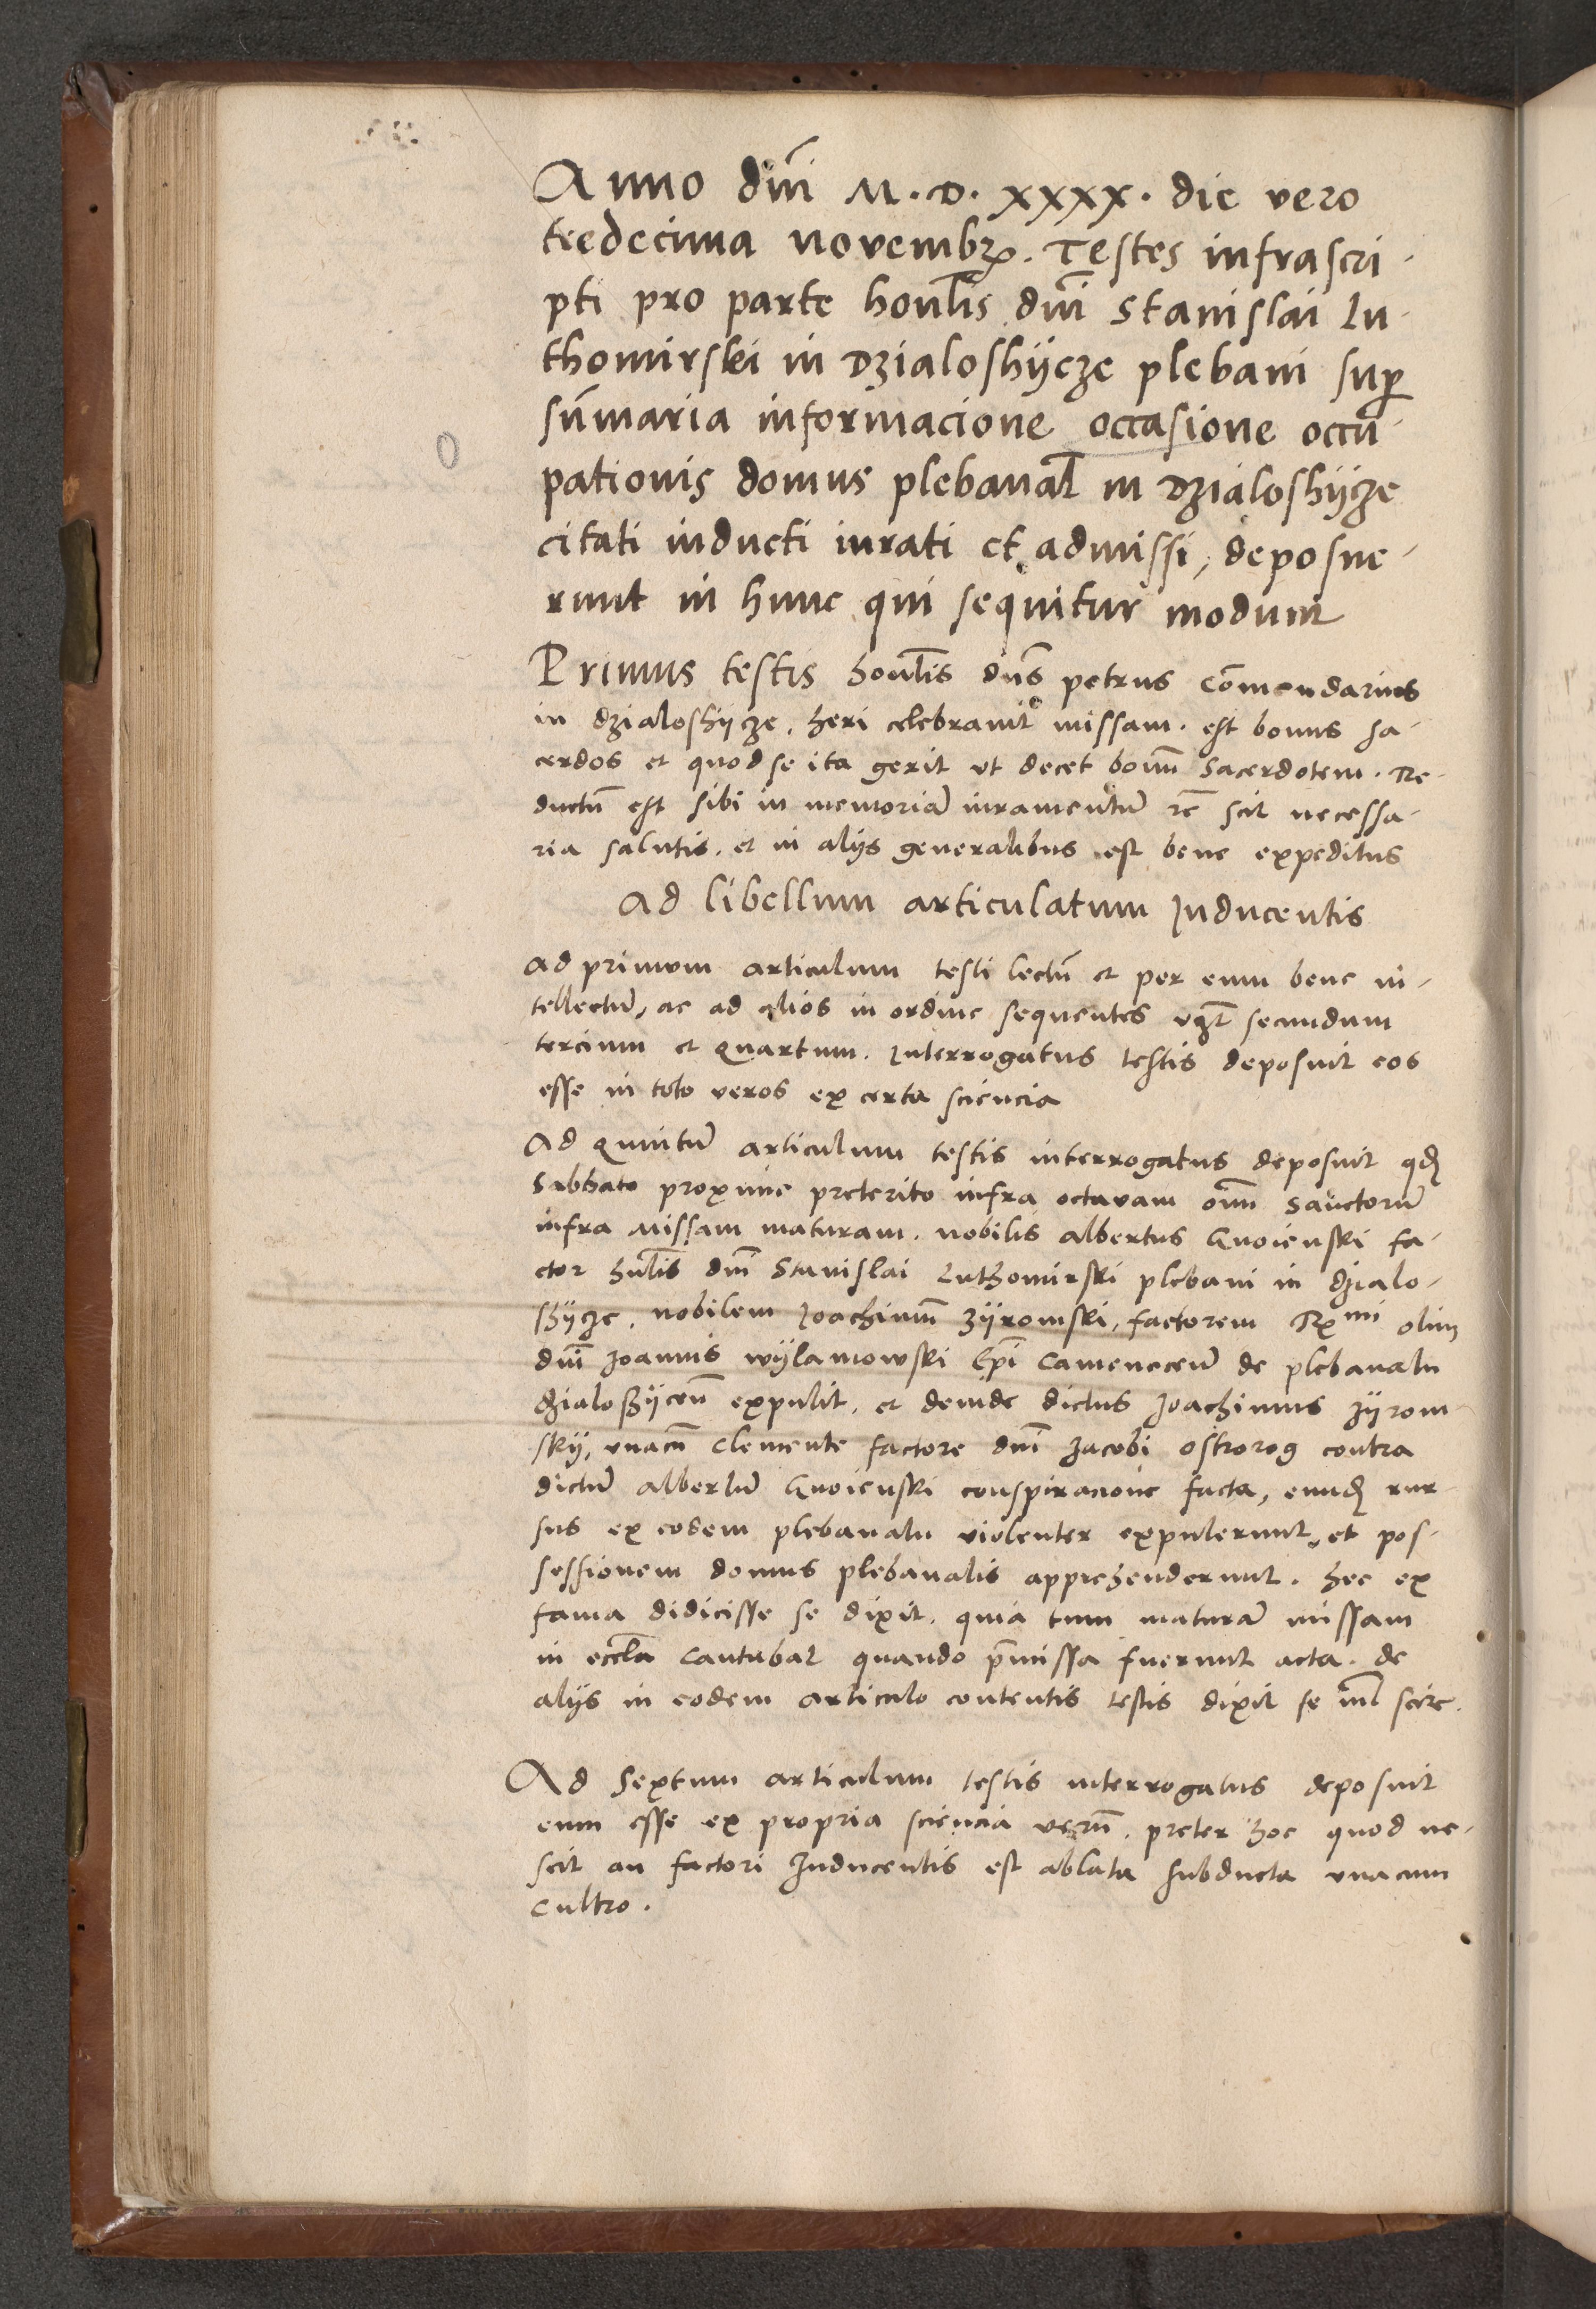 Anno dni M.D.XXXX. die vero
tredecima novembr. Testes infrascri-
pti pro parte honlis dni Stanislai Lu-
thomirski in Dzialoshijcze plebani sup
sumaria informacione occasione occu-
pationis domus plebanal in Dzialoshijcze
citati inducti iurati et admissi, deposue-
runt in hunc qui sequitur modum
Primus testis honlis dns petrus comendarius
in dzialoshijcze, heri celebravit missam. est bonus sa-
cerdos et quod se ita gerit ut decet bonum sacerdotem. Re-
ductu est sibi in memoria iuramentu scit necessa-
ria salutis. et in alijs generalibus est bene expeditus
Ad libellum articulatum Inducentis
Ad primum articulum testi lectu et per eum bene in-
tellectu, ac ad alios in ordine sequentes vzt secundum
tercium et quartum. Interrogatus testis deposuit eos
esse in toto veros ex certa sciencia
Ad quintu articulum testis interrogatus deposuit qd
Sabbato proxime preterito infra octavam oim sanctoru
infra Missam maturam. nobilis albertus Gnoienski fa-
ctor hnlis dni Stanislai Luthomirski plebani in dzialo-
shijcze. nobilem Joachimu Zijromski, factorem Rx mi olim
dni Joannis wijlamowski Epi Camenecen de plebanatu
dzialoshijcen expulit. et deinde dictus Joachimus Zijrom-
skij, unacu Clemente factore dni Jacobi Ostrorog contra
dictu albertu Gnoienski conspiracione facta, eund rur-
sus ex eodem plebanatu violenter expulerunt, et pos-
sessionem domus plebanalis apprehenderunt. hec ex
fama didicisse se dixit. quia tum matura missam
in eccla Cantabat quando pmissa fuerunt acta. de
alijs in eodem articulo contentis testis dixit se nil scire.
Ad Sextum articulum testis interrogatus deposuit
eum esse ex propria sciencia veru. preter hoc quod ne-
scit an factori Inducentis est ablata subducta unacum
cultro.